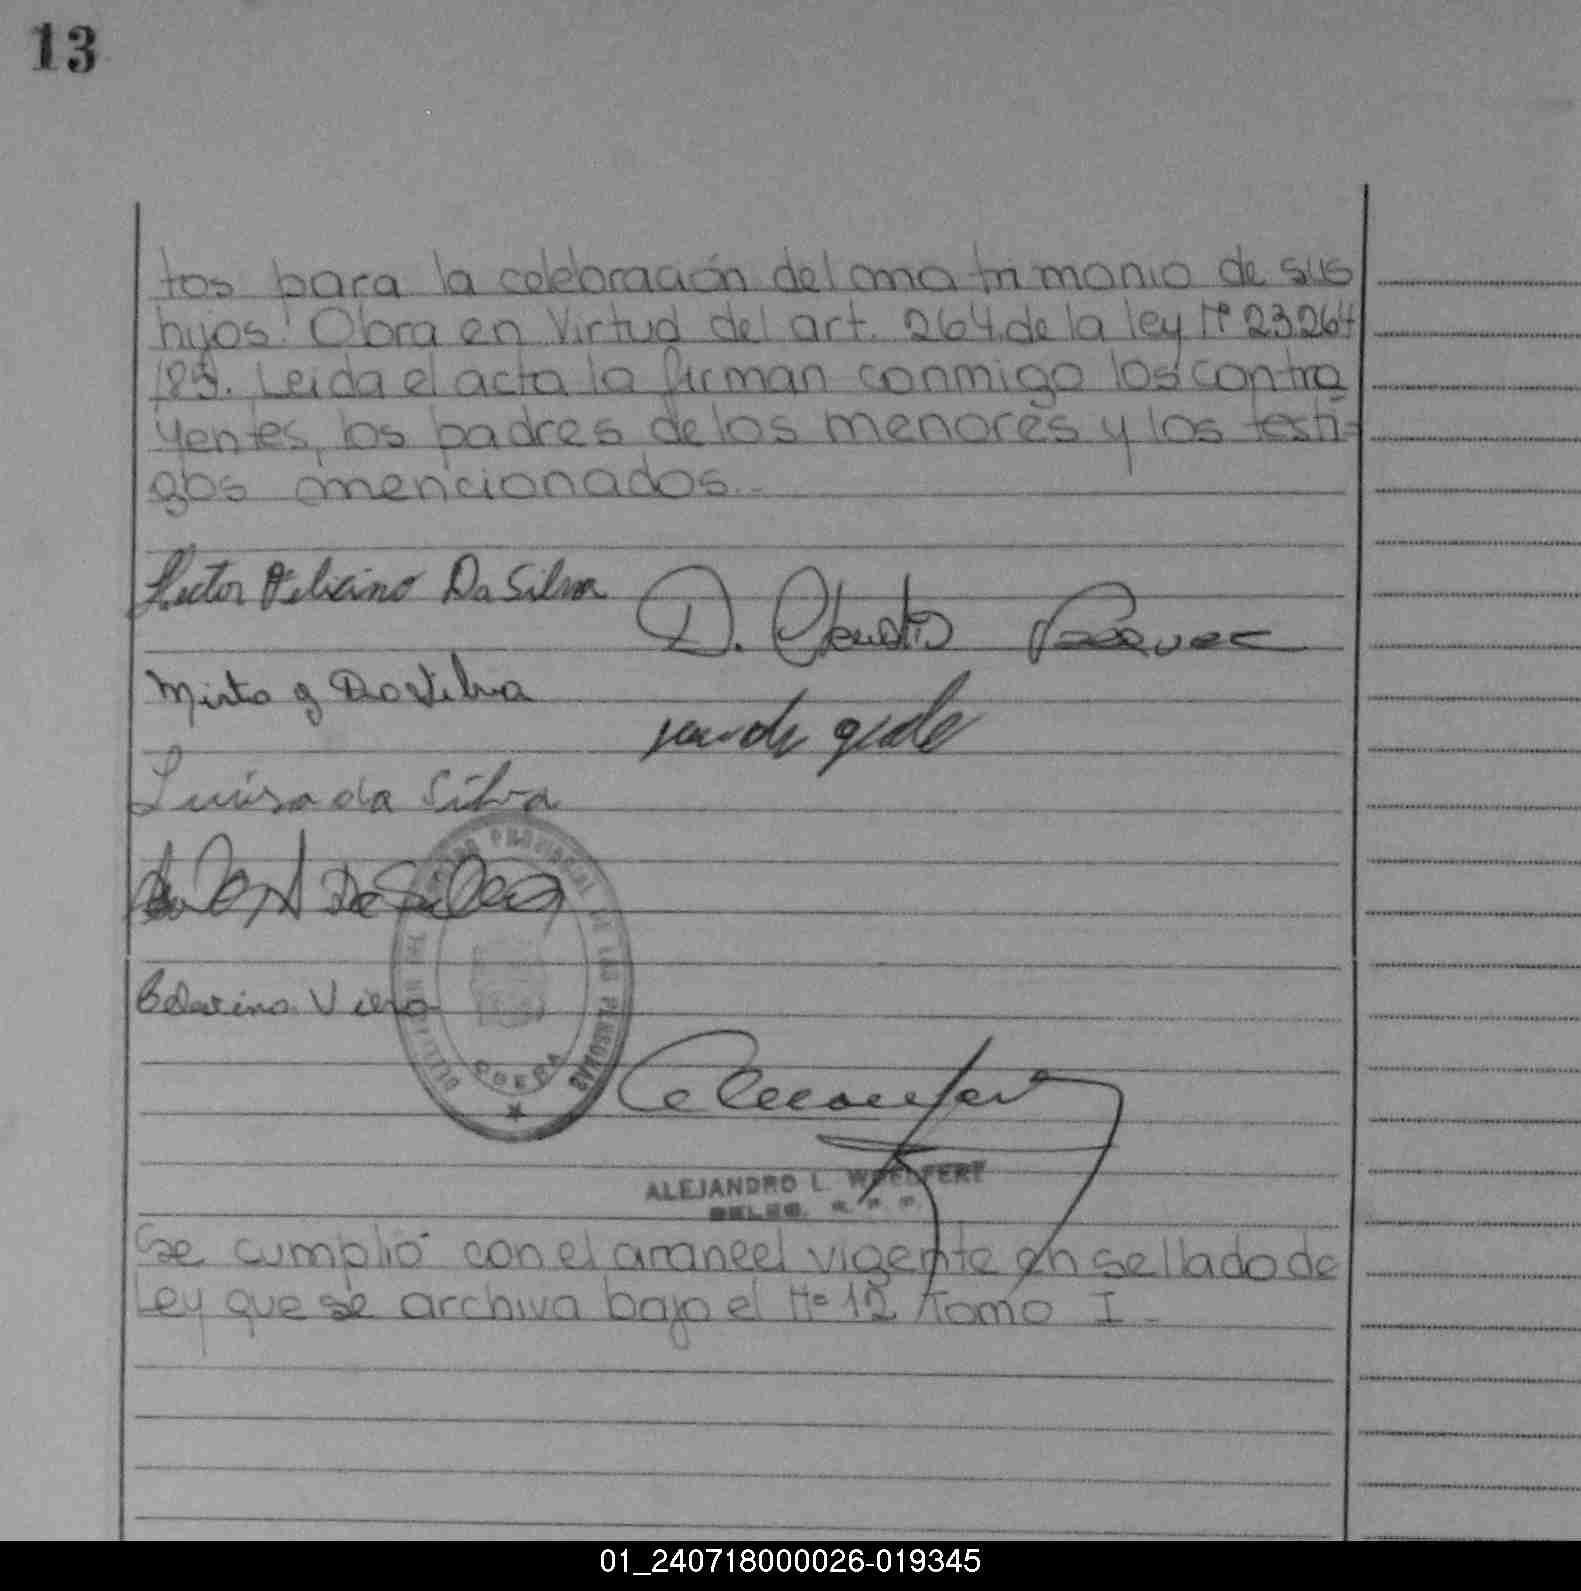 13
tos para la celebración del ma trimonio de sus
hijos. Obra en Virtud del art. 264 de la ley Nº 23264
/85. Leida el acta la firman conmigo los contra
yentes, los padres de los menores y los testi-
gos mencionados.-
Hector Feliciano Da Silva
D. Claudio
Mirta g Da Silva
Luisa da Silva
Da Silva
PROVINCIAL DE LAS PERSONAS
Viera
ALEJANDRO L. WOELFERT
DELEG. R. P. P.
Se cumplió con el arancel vigente en sellado de
Ley que se archiva bajo el Nº 12 Tomo I -
01_240718000026-019345